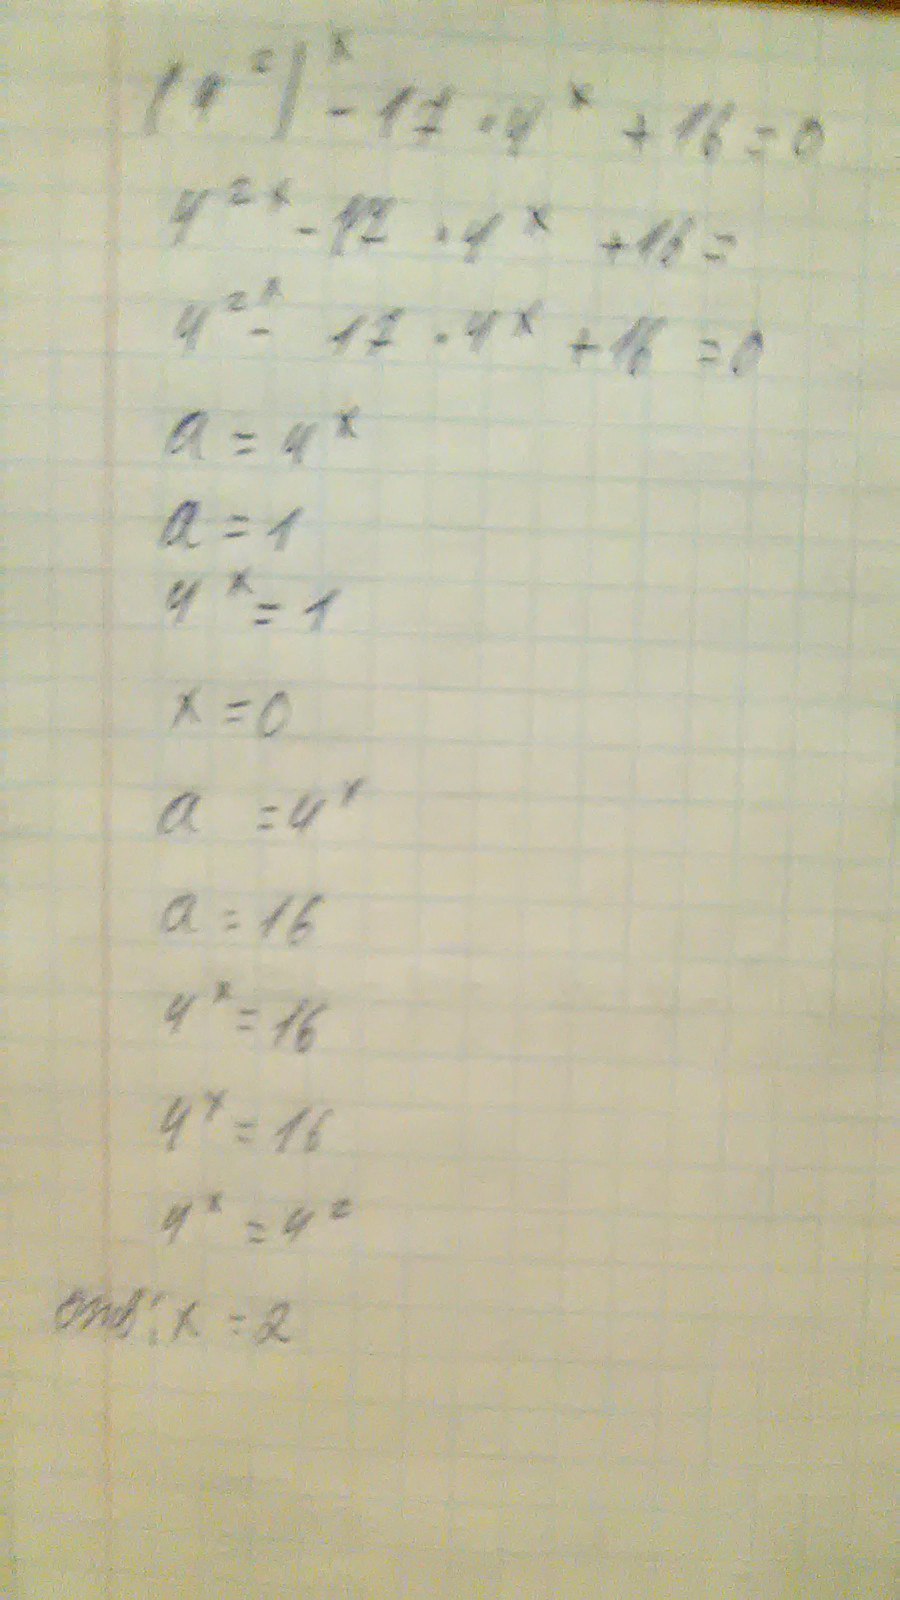 (4²)ˣ - 17 · 4ˣ + 16 = 0
4²ˣ - 17 · 4ˣ + 16 =
4²ˣ - 17 · 4ˣ + 16 = 0
a = 4ˣ
a = 1
4ˣ = 1
x = 0
a = 4ˣ
a = 16
4ˣ = 16
4ˣ = 16
4ˣ = 4²
отв: x = 2